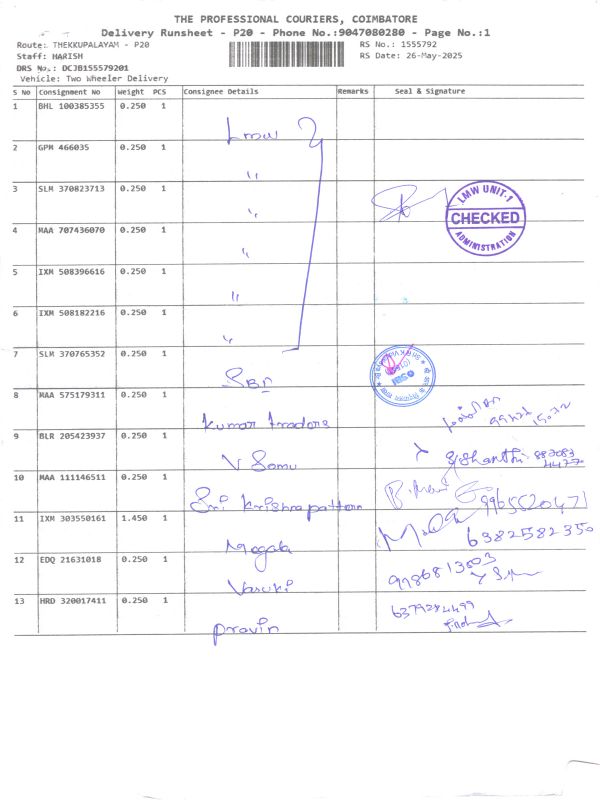 THE PROFESSIONAL COURIERS, COIMBATORE
Delivery Runsheet - P20 - Phone No.:9047080280 - Page No.:1
Route: THEKKUPALAYAM - P20 RS No.: 1555792
Staff: HARISH RS Date: 26-May-2025
DRS No.: DCJB155579201
Vehicle: Two Wheeler Delivery
S No Consignment No Weight PCS Consignee Details Remarks Seal & Signature
1 BHL 100385355 0.250 1
Lmw
2 GPM 466035 0.250 1
"
3 SLM 370823713 0.250 1
"
LMW UNIT-1
CHECKED
ADMINISTRATION
4 MAA 707436070 0.250 1
"
5 IXM 508396616 0.250 1
"
6 IXM 508182216 0.250 1
"
7 SLM 370765352 0.250 1
SBI
8 MAA 575179311 0.250 1
Kumar Traders
9 BLR 205423937 0.250 1
V Somu
10 MAA 111146511 0.250 1
Sri Krishna pattern 9965520471
11 IXM 303550161 1.450 1
Megala 6382582350
12 EDQ 21631018 0.250 1
Vasuki
13 HRD 320017411 0.250 1
Pravin